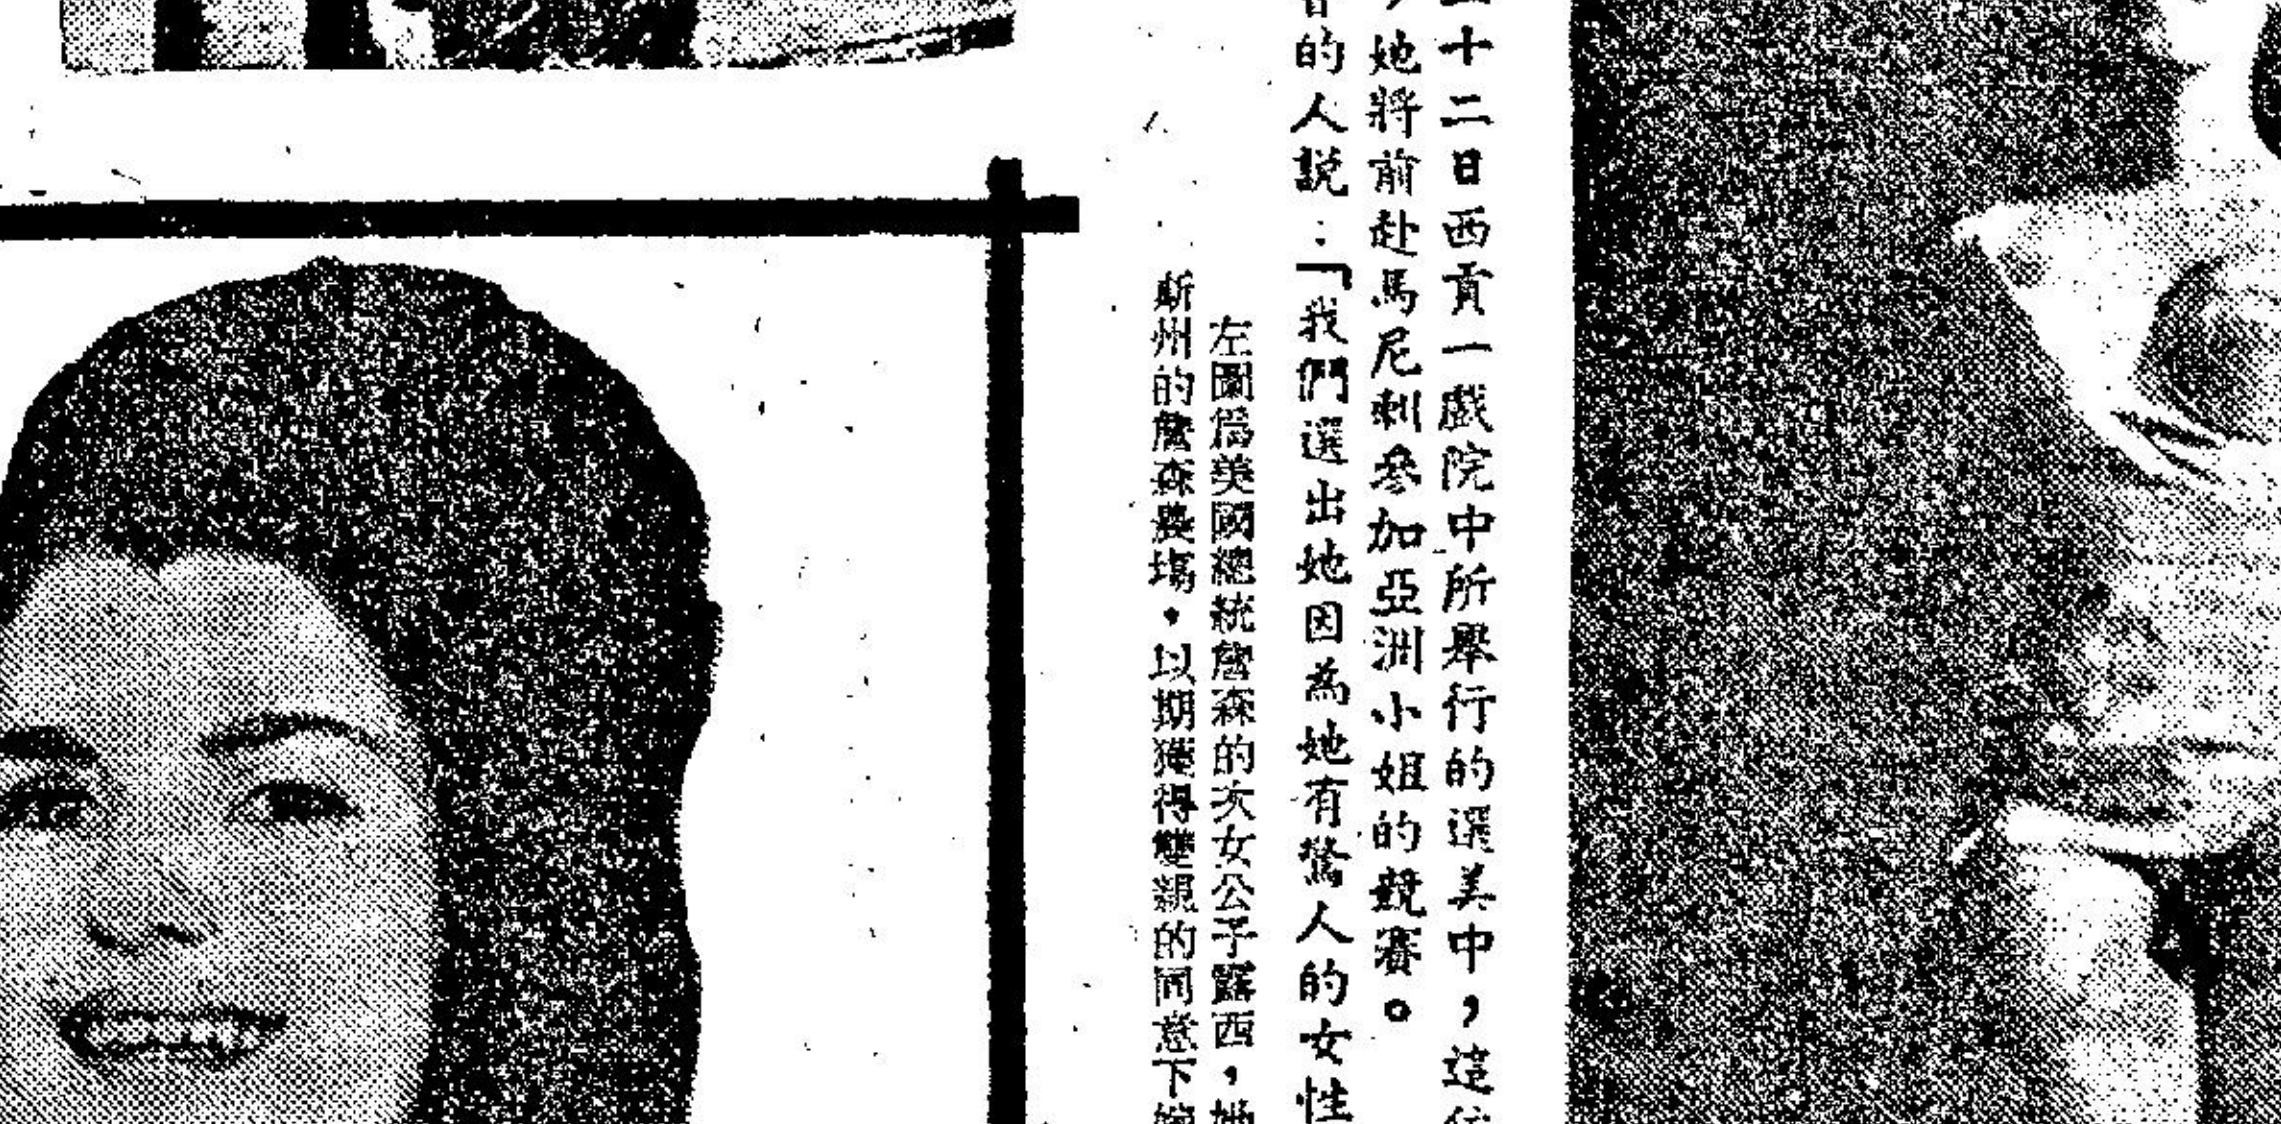 十二日西貢一戲院中所舉行的選美中，這
，她將前赴馬尼剌參加亞洲小姐的競賽。
的人説：「我們選出她因為她有驚人的女性
左圖爲美國總統詹森的次女公子露西，她
斯州的詹森農塲，以期獲得雙親的同意下